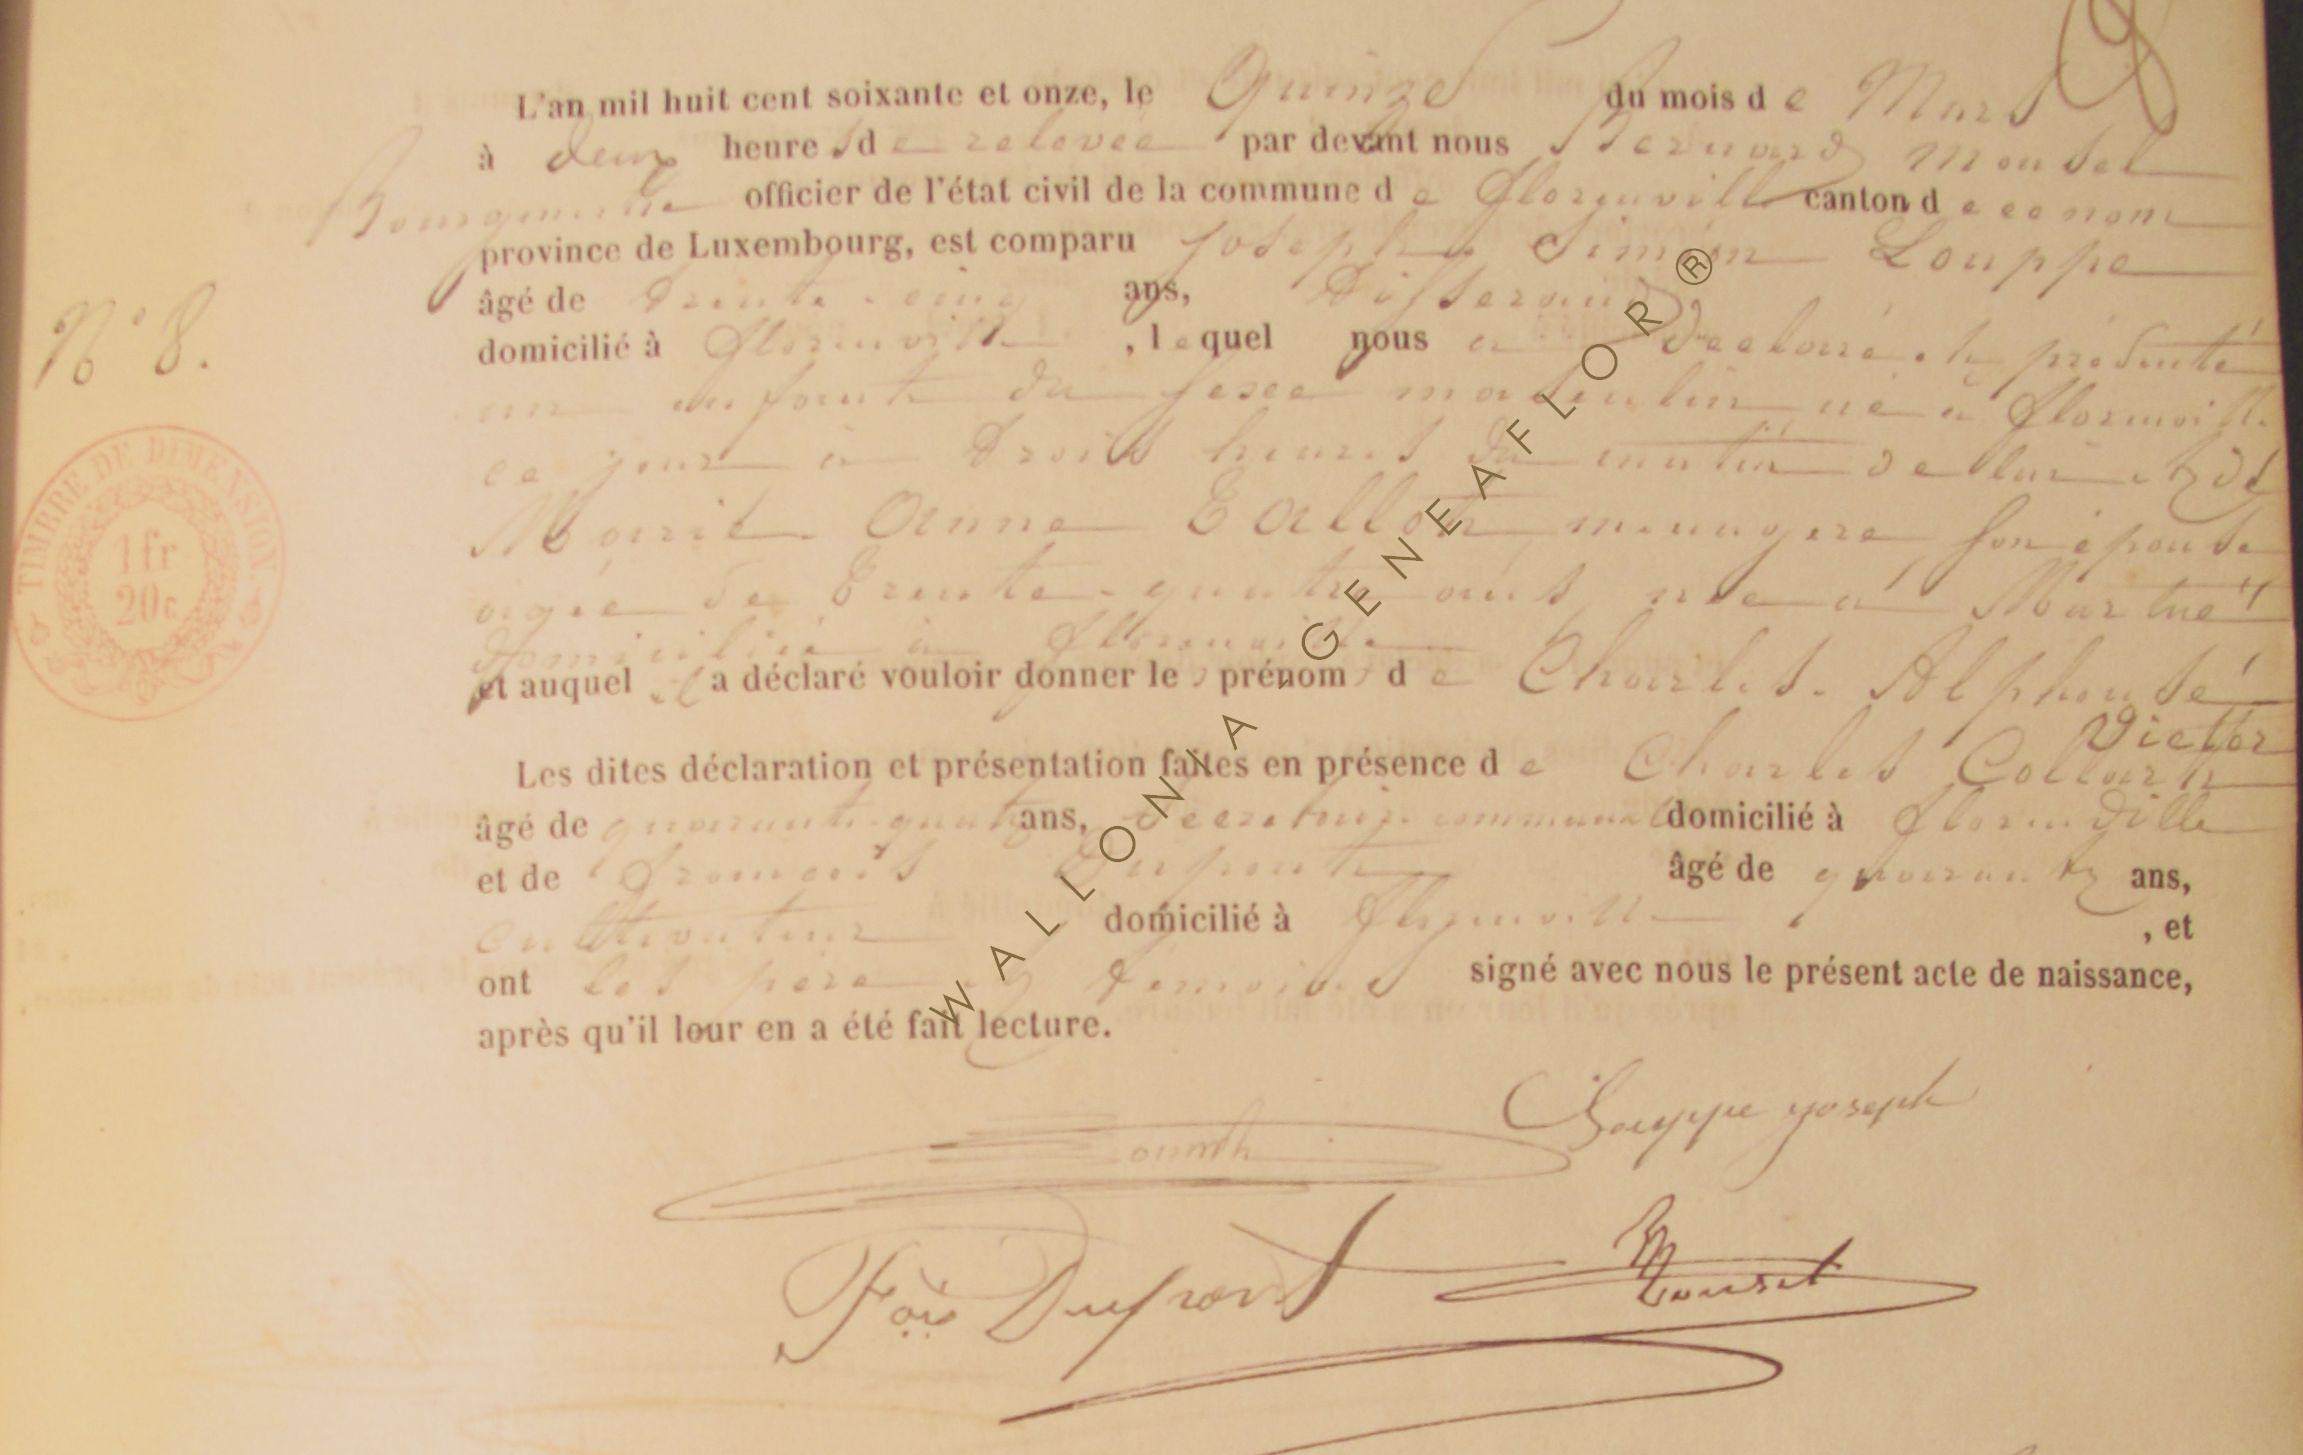 L'an mil huit cent soixante et onze, le Quinze du mois d e Mars
à deux heure s d e relevée par devant nous Bernard Mousel
Bourgmestre officier de l'état civil de la commune d e florenville canton d e ce nom
province de Luxembourg, est comparu Joseph Simon Louppe
âgé de trente-cinq ans, Tisserand
domicilié à florenville , l e quel nous a déclaré et présenté
un enfant du sexe masculin né à florenville
ce jour à trois heures du matin de lui et de
Marie Anne Tallot menagere son épouse
agée de Trente-quatre ans née à Martué
domiciliée à florenville
et auquel il a déclaré vouloir donner le s prénom s d e Charles Alphonse
Victor
Les dites déclaration et présentation faites en présence d e Charles Collart
âgé de quarante-quatre ans, secretaire communal domicilié à florenville
et de françois Dupont âgé de quarante ans,
cultivateur domicilié à florenville , et
ont les père et témoins signé avec nous le présent acte de naissance,
après qu'il leur en a été fait lecture.
N° 8.
TIMBRE DE DIMENSION
1 fr
20c
Louppe joseph
Fçois Dupont
Mousel
WALLONIA GENEAFLOR ®